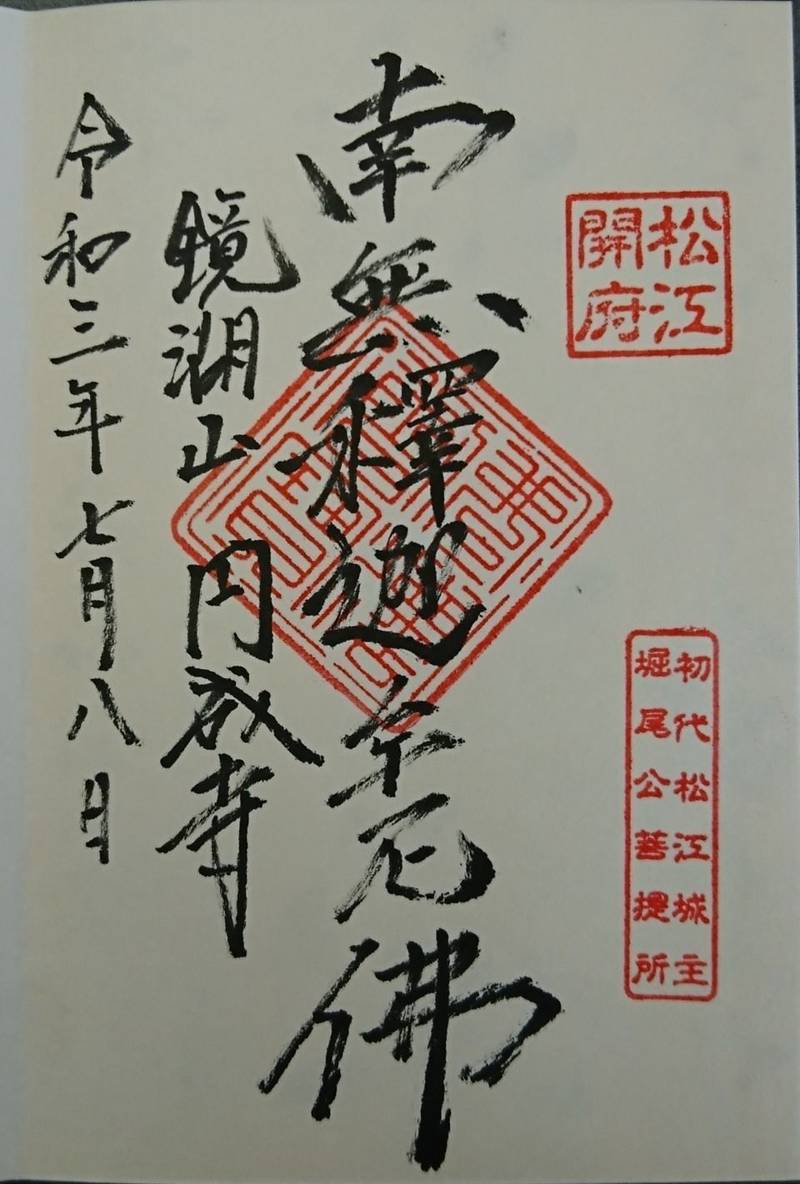 松江
開府
初代松江城主
堀尾公菩提所
南無釋迦牟尼佛
鏡湖山 円成寺
令和三年七月八日